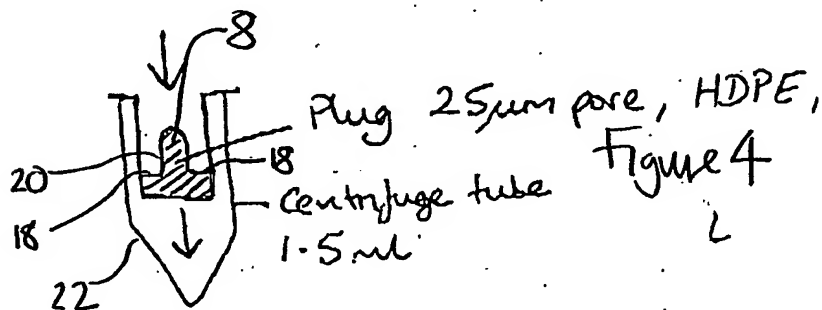 8
Plug 25µm pore, HDPE,
20
18
Figure 4
18
Centrifuge tube
1.5ml
22